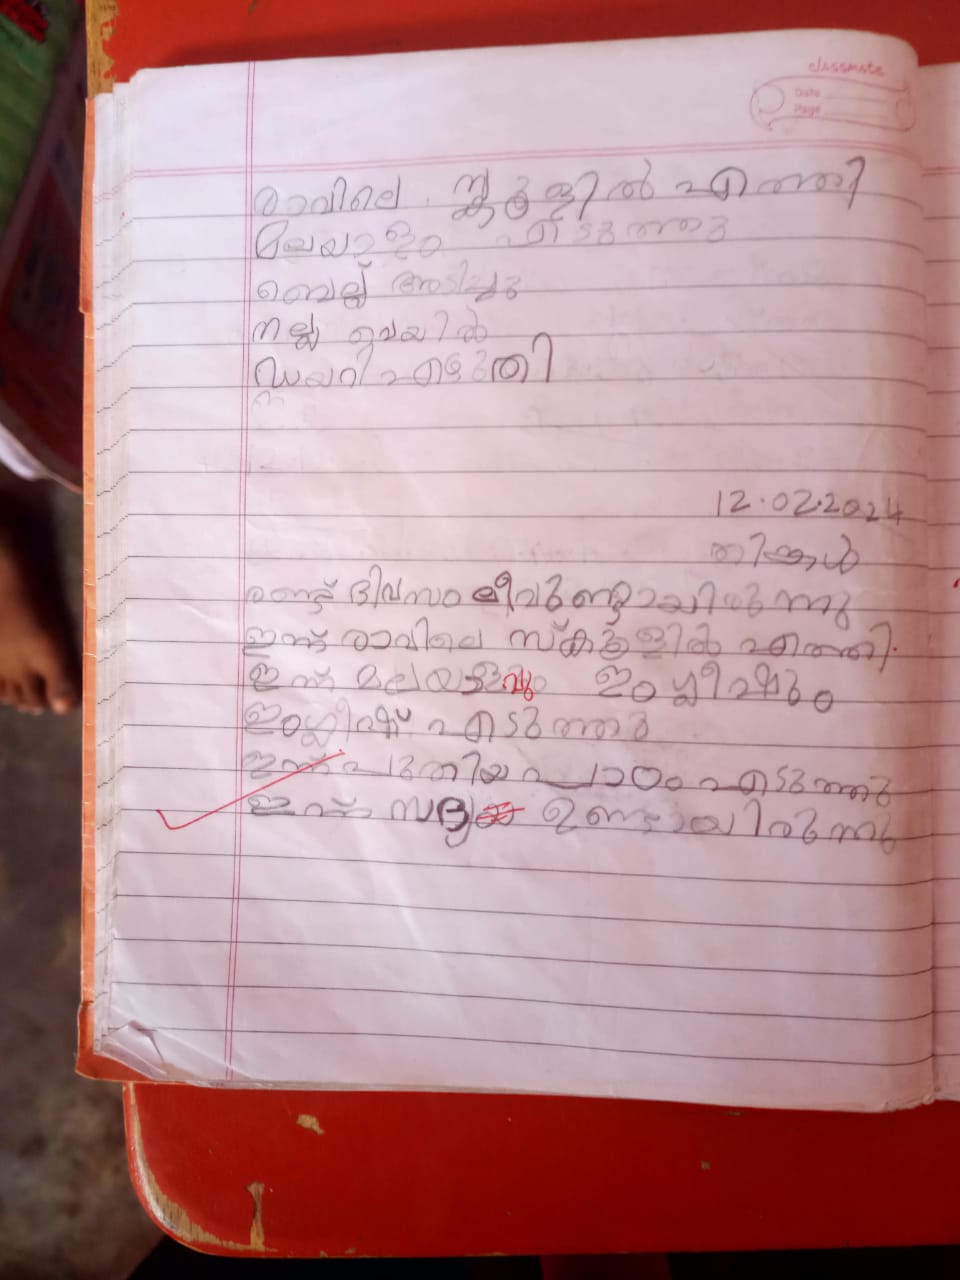 classmate
Date
Page
രാവിലെ സ്കൂളിൽ എത്തി
മലയാളം എടുത്തു
ബെല്ല് അടിച്ചു
നല്ല വെയിൽ
ഡയറി എഴുതി
12.02.2024
തിങ്കൾ
രണ്ട് ദിവസം ലീവുണ്ടായിരുന്നു
ഇന്ന് രാവിലെ സ്കൂളിൽ എത്തി.
ഇന്ന് മലയളവും ഇംഗ്ലീഷും
ഇംഗ്ലീഷ് എടുത്തു
ഇന്ന് പുതിയ പാഠം എടുത്തു
ഇന്ന് സദ്യ ഉണ്ടായിരുന്നു